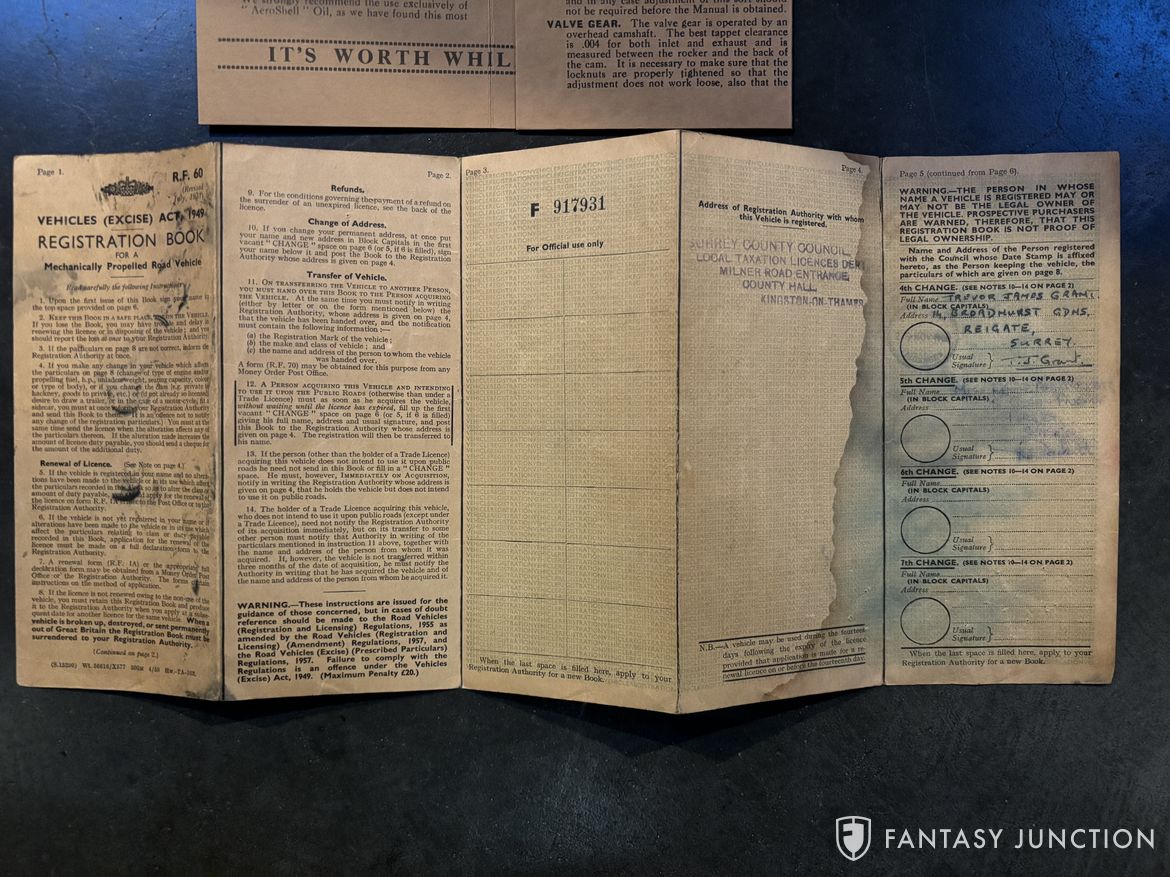 We strongly recommend the use exclusively of
" AeroShell " Oil, as we have found this most
IT'S WORTH WHIL
and in any case adjustment of this sort should
not be required before the Manual is obtained.
VALVE GEAR. The valve gear is operated by an
overhead camshaft. The best tappet clearance
is .004 for both inlet and exhaust and is
measured between the rocker and the back of
the cam. It is necessary to make sure that the
locknuts are properly tightened so that the
adjustment does not work loose, also that the
Page 1.
R.F. 60
(Revised
July, 1957)
VEHICLES (EXCISE) ACT, 1949
REGISTRATION BOOK
FOR A
Mechanically Propelled Road Vehicle
Read carefully the following Instructions
1. Upon the first issue of this Book sign your name in
the top space provided on page 6.
2. KEEP THIS BOOK IN A SAFE PLACE, NOT ON THE VEHICLE.
If you lose the Book, you may have trouble and delay in
renewing the licence or in disposing of the vehicle; and you
should report the loss at once to your Registration Authority.
3. If the particulars on page 8 are not correct, inform the
Registration Authority at once.
4. If you make any change in your vehicle which affects
the particulars on page 8 (change of type of engine and/or
propelling fuel, h.p., unladen weight, seating capacity, colour
or type of body), or if you change the use (e.g. private to
hackney, goods to private, etc.) or (if not already so licensed)
desire to draw a trailer, or in the case of a motor-cycle, fit a
sidecar, you must at once inform your Registration Authority
and send this Book to them. It is an offence not to notify
any change of the registration particulars.) You must at the
same time send the licence when the alteration affects any of
the particulars thereon. If the alteration made increases the
amount of licence duty payable, you should send a cheque for
the amount of the additional duty.
Renewal of Licence. (See Note on page 4.)
5. If the vehicle is registered in your name and no altera-
tions have been made to the vehicle or in its use which affect
the particulars recorded in this Book so as to alter the class or
amount of duty payable, apply for the renewal of
the licence on form R.F. 1A to the Post Office or to the
Registration Authority.
6. If the vehicle is not yet registered in your name or if
alterations have been made to the vehicle or in its use which
affect the particulars relating to class or duty payable
recorded in this Book, application for the renewal of the
licence must be made on a full declaration form to the
Registration Authority.
7. A renewal form (R.F. 1A) or the appropriate full
declaration form may be obtained from a Money Order Post
Office or the Registration Authority. The forms contain
instructions on the method of application.
8. If the licence is not renewed owing to the non-use of the
vehicle, you must retain this Registration Book and produce
it to the Registration Authority when you apply at a subse-
quent date for another licence for the same vehicle. When a
vehicle is broken up, destroyed, or sent permanently
out of Great Britain the Registration Book must be
surrendered to your Registration Authority.
(Continued on page 2.)
Page 2.
Refunds.
9. For the conditions governing the payment of a refund on
the surrender of an unexpired licence, see the back of the
licence.
Change of Address.
10. If you change your permanent address, at once put
your name and new address in Block Capitals in the first
vacant " CHANGE " space on page 6 (or 5, if 6 is filled), sign
your name below it and post the Book to the Registration
Authority whose address is given on page 4.
Transfer of Vehicle.
11. ON TRANSFERRING THE VEHICLE TO ANOTHER PERSON,
YOU MUST HAND OVER THIS BOOK TO THE PERSON ACQUIRING
THE VEHICLE. At the same time you must notify in writing
(either by letter or on the form mentioned below) the
Registration Authority, whose address is given on page 4,
that the vehicle has been handed over, and the notification
must contain the following information :—
(a) the Registration Mark of the vehicle ;
(b) the make and class of vehicle ; and
(c) the name and address of the person to whom the vehicle
was handed over.
A form (R.F. 70) may be obtained for this purpose from any
Money Order Post Office.
12. A PERSON ACQUIRING THIS VEHICLE AND INTENDING
TO USE IT UPON THE PUBLIC ROADS (otherwise than under a
Trade Licence) must as soon as he acquires the vehicle,
without waiting until the licence has expired, fill up the first
vacant " CHANGE " space on page 6 (or 5, if 6 is filled)
giving his full name, address and usual signature, and post
this Book to the Registration Authority whose address is
given on page 4. The registration will then be transferred to
his name.
13. If the person (other than the holder of a Trade Licence)
acquiring this vehicle does not intend to use it upon public
roads he need not send in this Book or fill in a " CHANGE "
space. He must, however, IMMEDIATELY ON ACQUISITION,
notify in writing the Registration Authority whose address is
given on page 4, that he holds the vehicle but does not intend
to use it on public roads.
14. The holder of a Trade Licence acquiring this vehicle,
who does not intend to use it upon public roads (except under
a Trade Licence), need not notify the Registration Authority
of its acquisition immediately, but on its transfer to some
other person must notify that Authority in writing of the
particulars mentioned in instruction 11 above, together with
the name and address of the person from whom it was
acquired. If, however, the vehicle is not transferred within
three months of the date of acquisition, he must notify the
Authority in writing that he has acquired the vehicle and of
the name and address of the person from whom he acquired it.
WARNING.—These instructions are issued for the
guidance of those concerned, but in cases of doubt
reference should be made to the Road Vehicles
(Registration and Licensing) Regulations, 1955 as
amended by the Road Vehicles (Registration and
Licensing) (Amendment) Regulations, 1957, and
the Road Vehicles (Excise) (Prescribed Particulars)
Regulations, 1957. Failure to comply with the
Regulations is an offence under the Vehicles
(Excise) Act, 1949. (Maximum Penalty £20.)
Page 3.
F 917931
For Official use only
When the last space is filled here, apply to your
Registration Authority for a new Book.
Page 4.
Address of Registration Authority with whom
this Vehicle is registered.
SURREY COUNTY COUNCIL,
LOCAL TAXATION LICENCES DEPT
MILNER ROAD ENTRANCE,
COUNTY HALL,
KINGSTON-ON-THAMES
N.B.—A vehicle may be used during the fourteen
days following the expiry of the licence
provided that application is made for a re-
newal licence on or before the fourteenth day.
Page 5 (continued from Page 6).
WARNING.—THE PERSON IN WHOSE
NAME A VEHICLE IS REGISTERED MAY OR
MAY NOT BE THE LEGAL OWNER OF
THE VEHICLE. PROSPECTIVE PURCHASERS
ARE WARNED, THEREFORE, THAT THIS
REGISTRATION BOOK IS NOT PROOF OF
LEGAL OWNERSHIP.
Name and Address of the Person registered
with the Council whose Date Stamp is affixed
hereto, as the Person keeping the vehicle, the
particulars of which are given on page 8.
4th CHANGE. (SEE NOTES 10—14 ON PAGE 2)
Full Name TREVOR JAMES GRANT
(IN BLOCK CAPITALS)
Address 14, BROADHURST GDNS,
REIGATE,
SURREY.
Usual
Signature } T.J. Grant.
5th CHANGE. (SEE NOTES 10—14 ON PAGE 2)
Full Name
(IN BLOCK CAPITALS)
Address
Usual
Signature }
6th CHANGE. (SEE NOTES 10—14 ON PAGE 2)
Full Name
(IN BLOCK CAPITALS)
Address
Usual
Signature }
7th CHANGE. (SEE NOTES 10—14 ON PAGE 2)
Full Name
(IN BLOCK CAPITALS)
Address
Usual
Signature }
When the last space is filled here, apply to your
Registration Authority for a new Book.
FANTASY JUNCTION